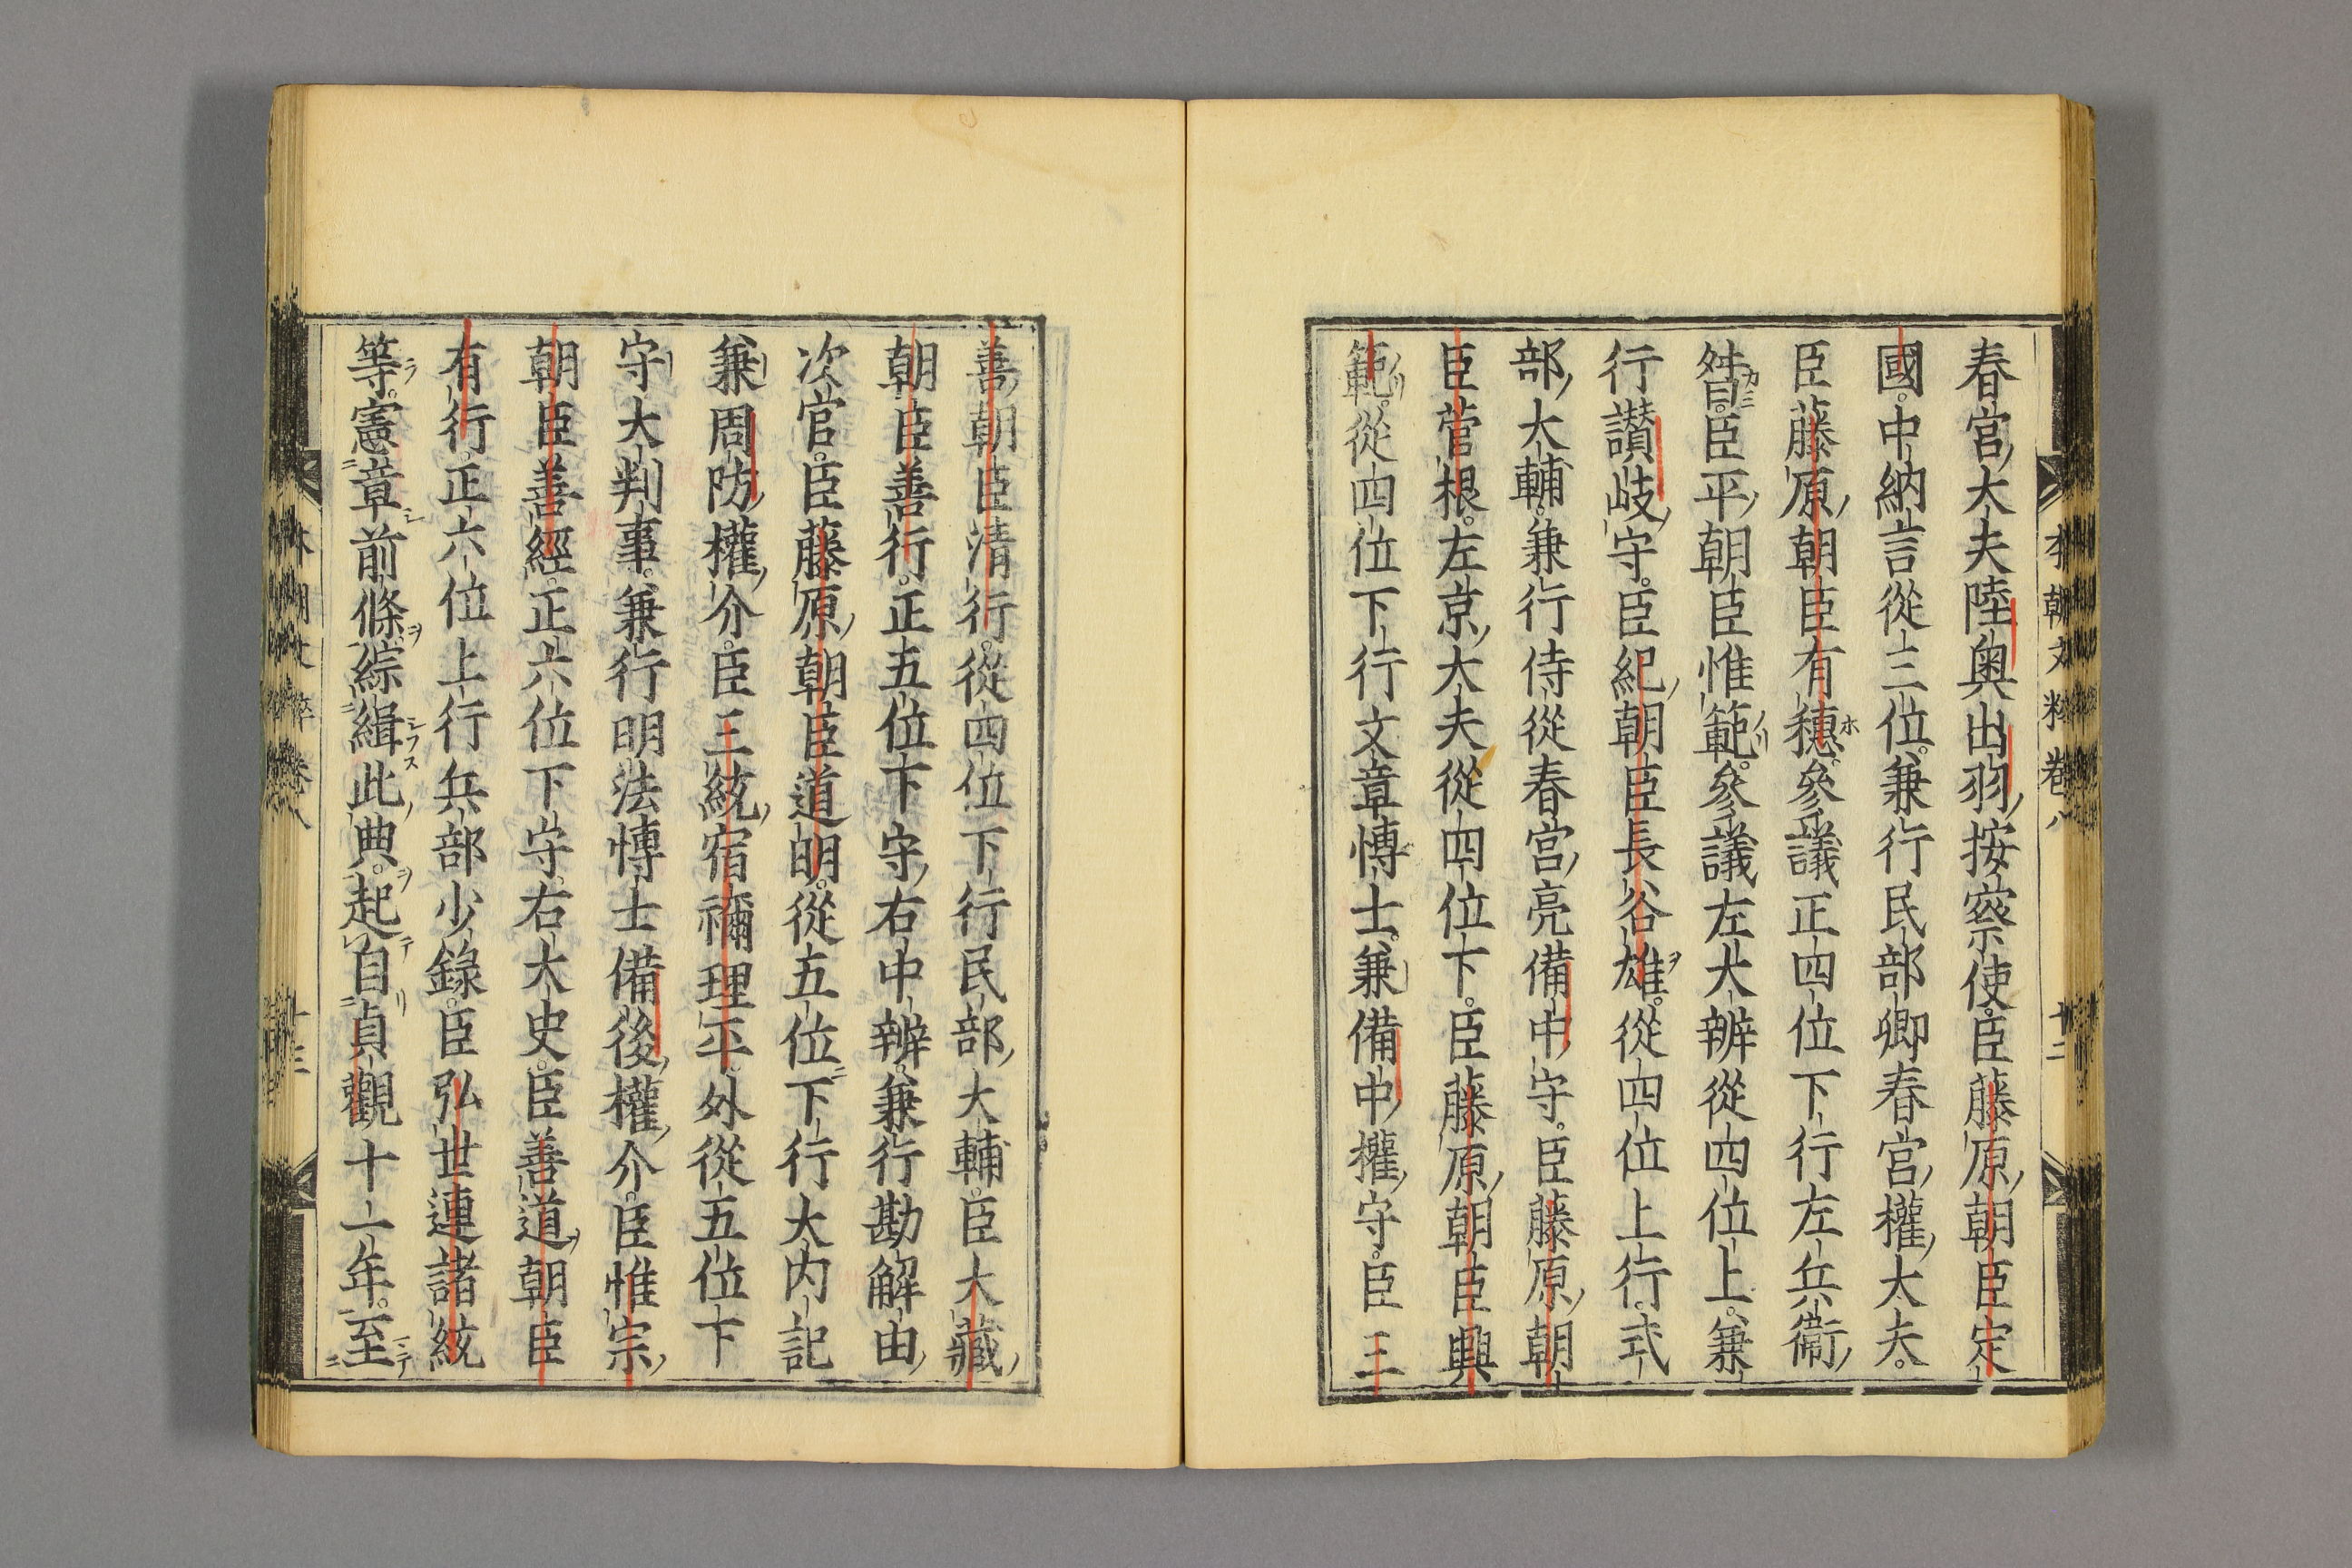 本朝文粹卷八
十二
春宮大夫陸奧出羽按察使臣藤原朝臣定
國中納言從三位兼行民部卿春宮權大夫
臣藤原朝臣有穗參議正四位下行左兵衞
督臣平朝臣惟範參議左大辨從四位上兼
行讃岐守臣紀朝臣長谷雄從四位上行式
部大輔兼行侍從春宮亮備中守臣藤原朝
臣菅根左京大夫從四位下臣藤原朝臣興
範從四位下行文章博士兼備中權守臣三
善朝臣清行從四位下行民部大輔臣大藏
朝臣善行正五位下守右中辨兼行勘解由
次官臣藤原朝臣道明從五位下行大内記
兼周防權介臣三統宿禰理平外從五位下
守大判事兼行明法博士備後權介臣惟宗
朝臣善經正六位下守右大史臣善道朝臣
有行正六位上行兵部少錄臣弘世連諸統
等憲章前條綜緝此典起自貞觀十一年至
本朝文粹卷八
十三